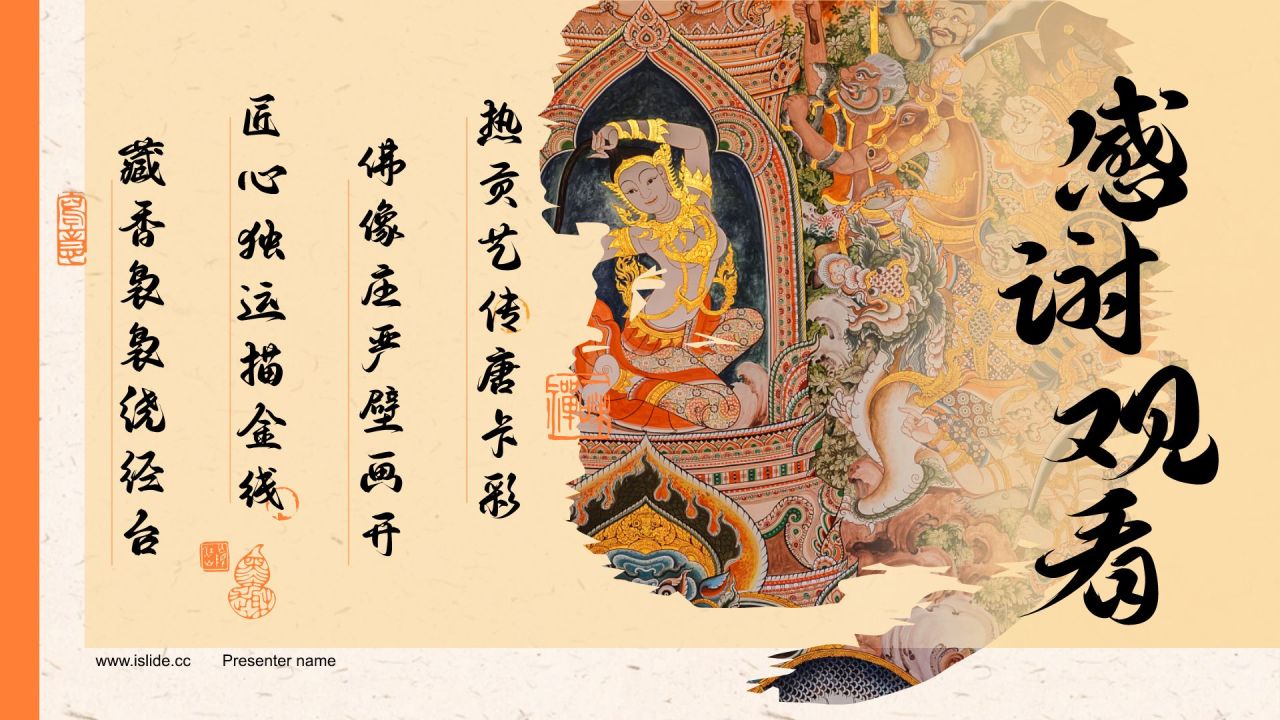 感谢观看
热贡艺传唐卡彩
佛像庄严壁画开
匠心独运描金线
藏香袅袅绕经台
www.islide.cc
Presenter name